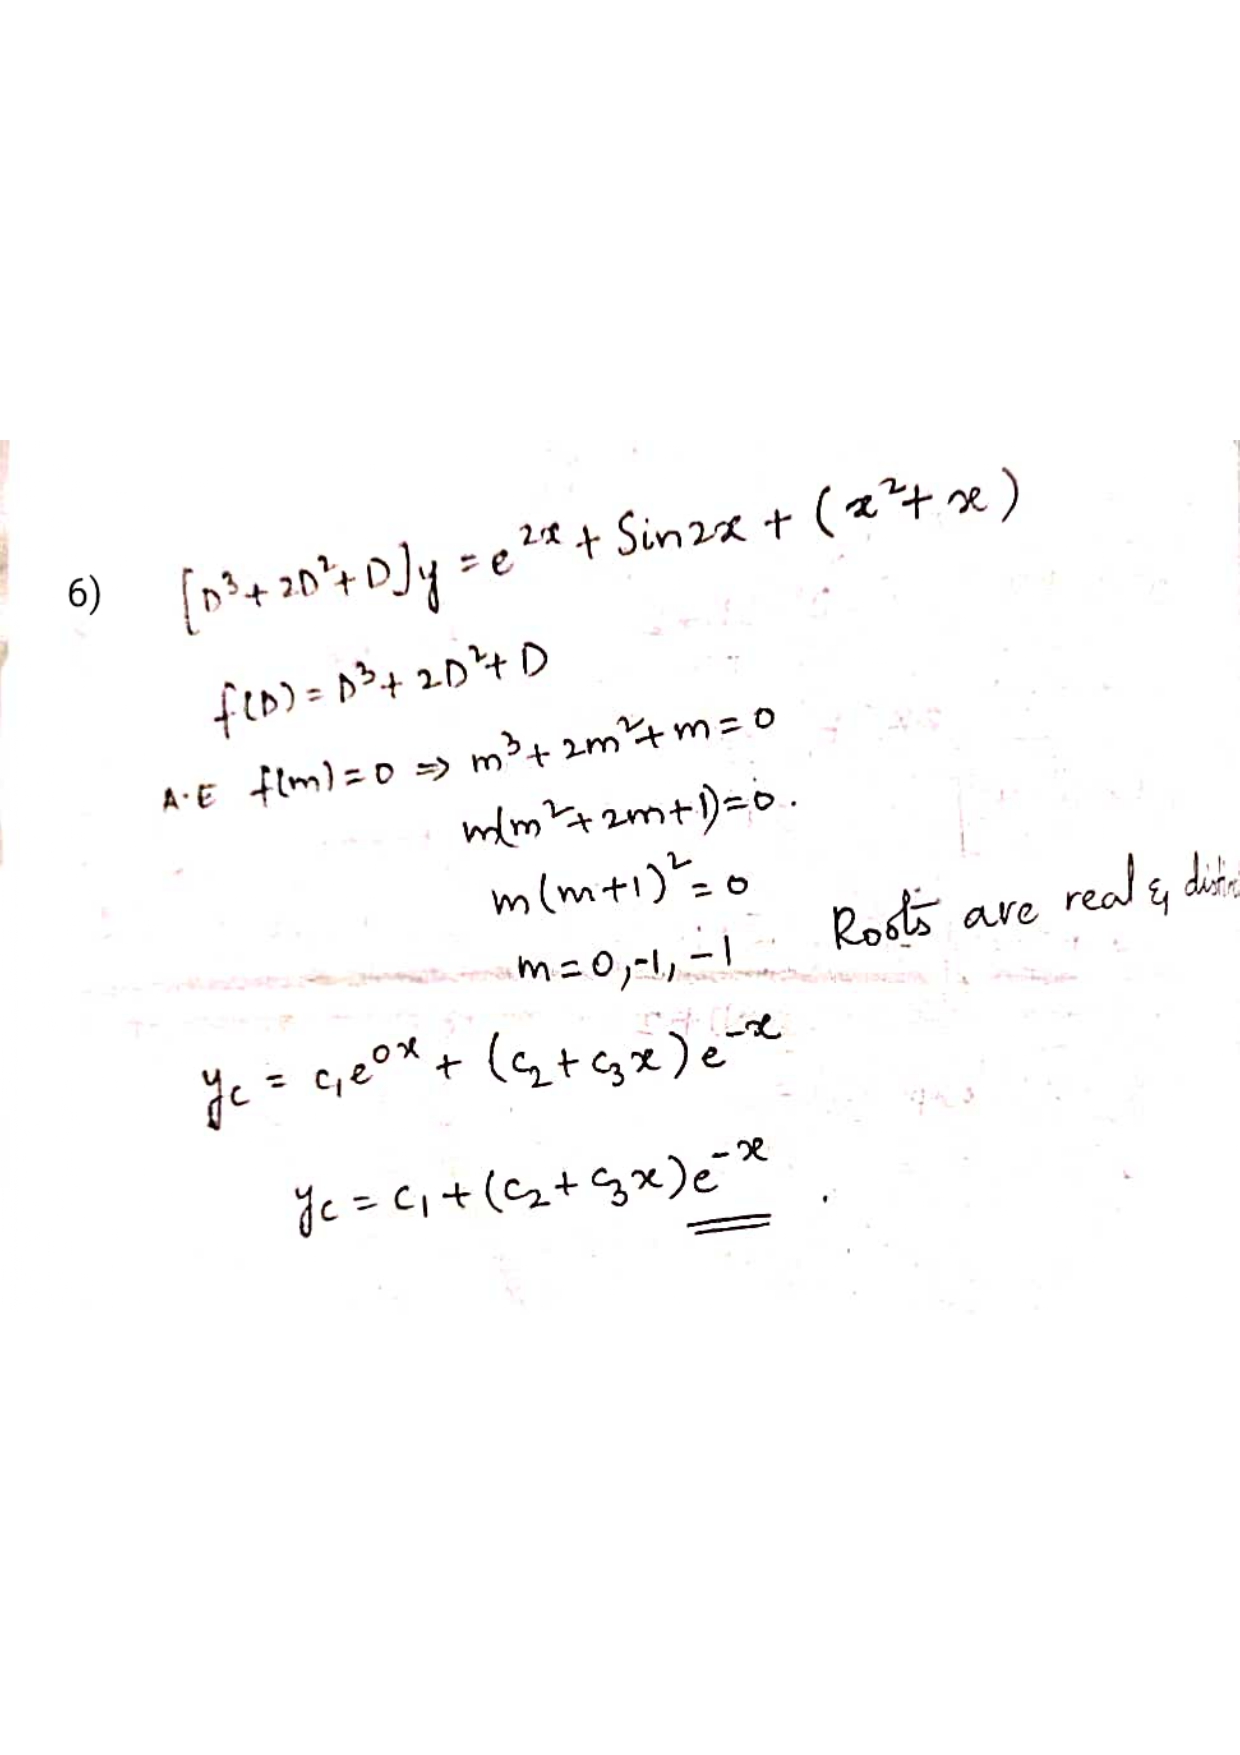 6) [D³+2D²+D]y = e²ˣ + Sin2x + (x²+x)
f(D) = D³+2D²+D
A.E f(m)=0 ⇒ m³+2m²+m=0
m(m²+2m+1)=0.
m(m+1)²=0
m=0,-1,-1 Roots are real &
y_c = c₁e⁰ˣ + (c₂+c₃x)e⁻ˣ
y_c = c₁+(c₂+c₃x)e⁻ˣ .